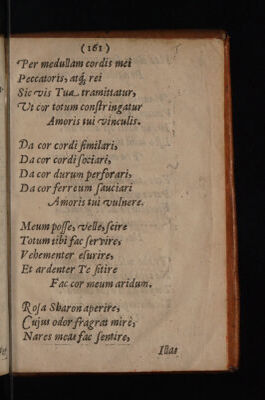 (161)
Per medullam cordis mei
Peccatoris, atq; rei
Sic vis Tua tramittatur,
Ut cor totum conſtringatur
Amoris tui vinculis.
Da cor cordi ſimilari,
Da cor cordi ſociari,
Da cor durum perforari,
Da cor ferreum ſauciari
Amoris tui vulnere.
Meum poſſe, velle, ſcire
Totum tibi fac ſervire,
Vehementer eſurire,
Et ardenter Te ſitire
Fac cor meum aridum.
Roſa Sharon aperire,
Cujus odor fragrat mirè,
Nares meas fac ſentire,
Illas